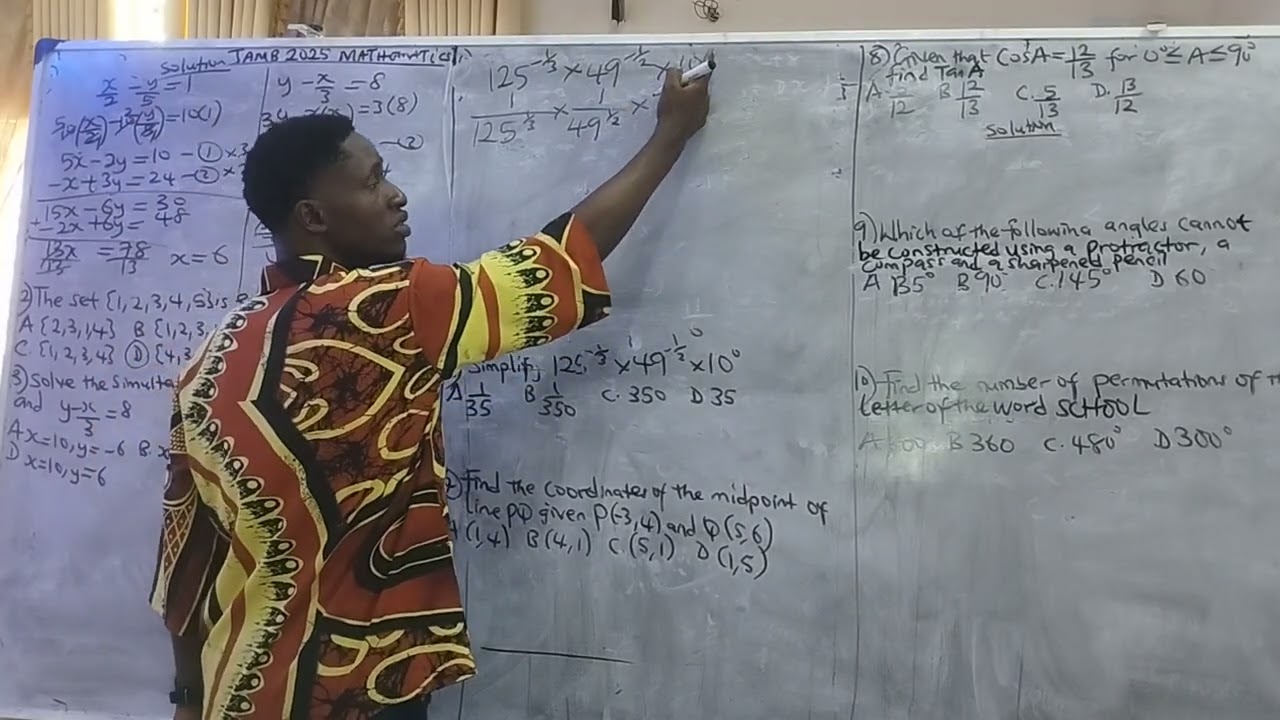 solution JAMB 2025 MATHEMATICS
x/2 - y/5 = 1
5x - 2y = 10 - ① ×3
-x + 3y = 24 - ②
15x - 6y = 30
+ -2x + 6y = 48
13x/13 = 78/13 x = 6
2) The set {1, 2, 3, 4, 5} is
A {2, 3, 1, 4} B {1, 2, 3,
C. {1, 2, 3, 4} Ⓓ {4, 3
3) Solve the Simulta
and y - x/3 = 8
A x = 10, y = -6 B.
D x = 10, y = 6
y - x/3 = 8
= 3(8)
125^-1/3 × 49^-1/2 ×
1/125^1/3 × 1/49^1/2 ×
Simplify 125^-1/3 × 49^-1/2 × 10°
A 1/35 B 1/350 C. 350 D 35
Find the coordinates of the midpoint of
line PQ given P(-3, 4) and Q(5, 6)
(1, 4) B (4, 1) C. (5, 1) D (1, 5)
8) Given that Cos A = 12/13 for 0° ≤ A ≤ 90°
find Tan A
A. /12 B 12/13 C. 5/13 D. 13/12
Solution
9) Which of the following angles cannot
be constructed using a protractor, a
compass and a sharpened pencil
A 135° B 90° C. 145° D 60
10) Find the number of permutations of
letter of the word SCHOOL
A B 360 C. 480° D 300°